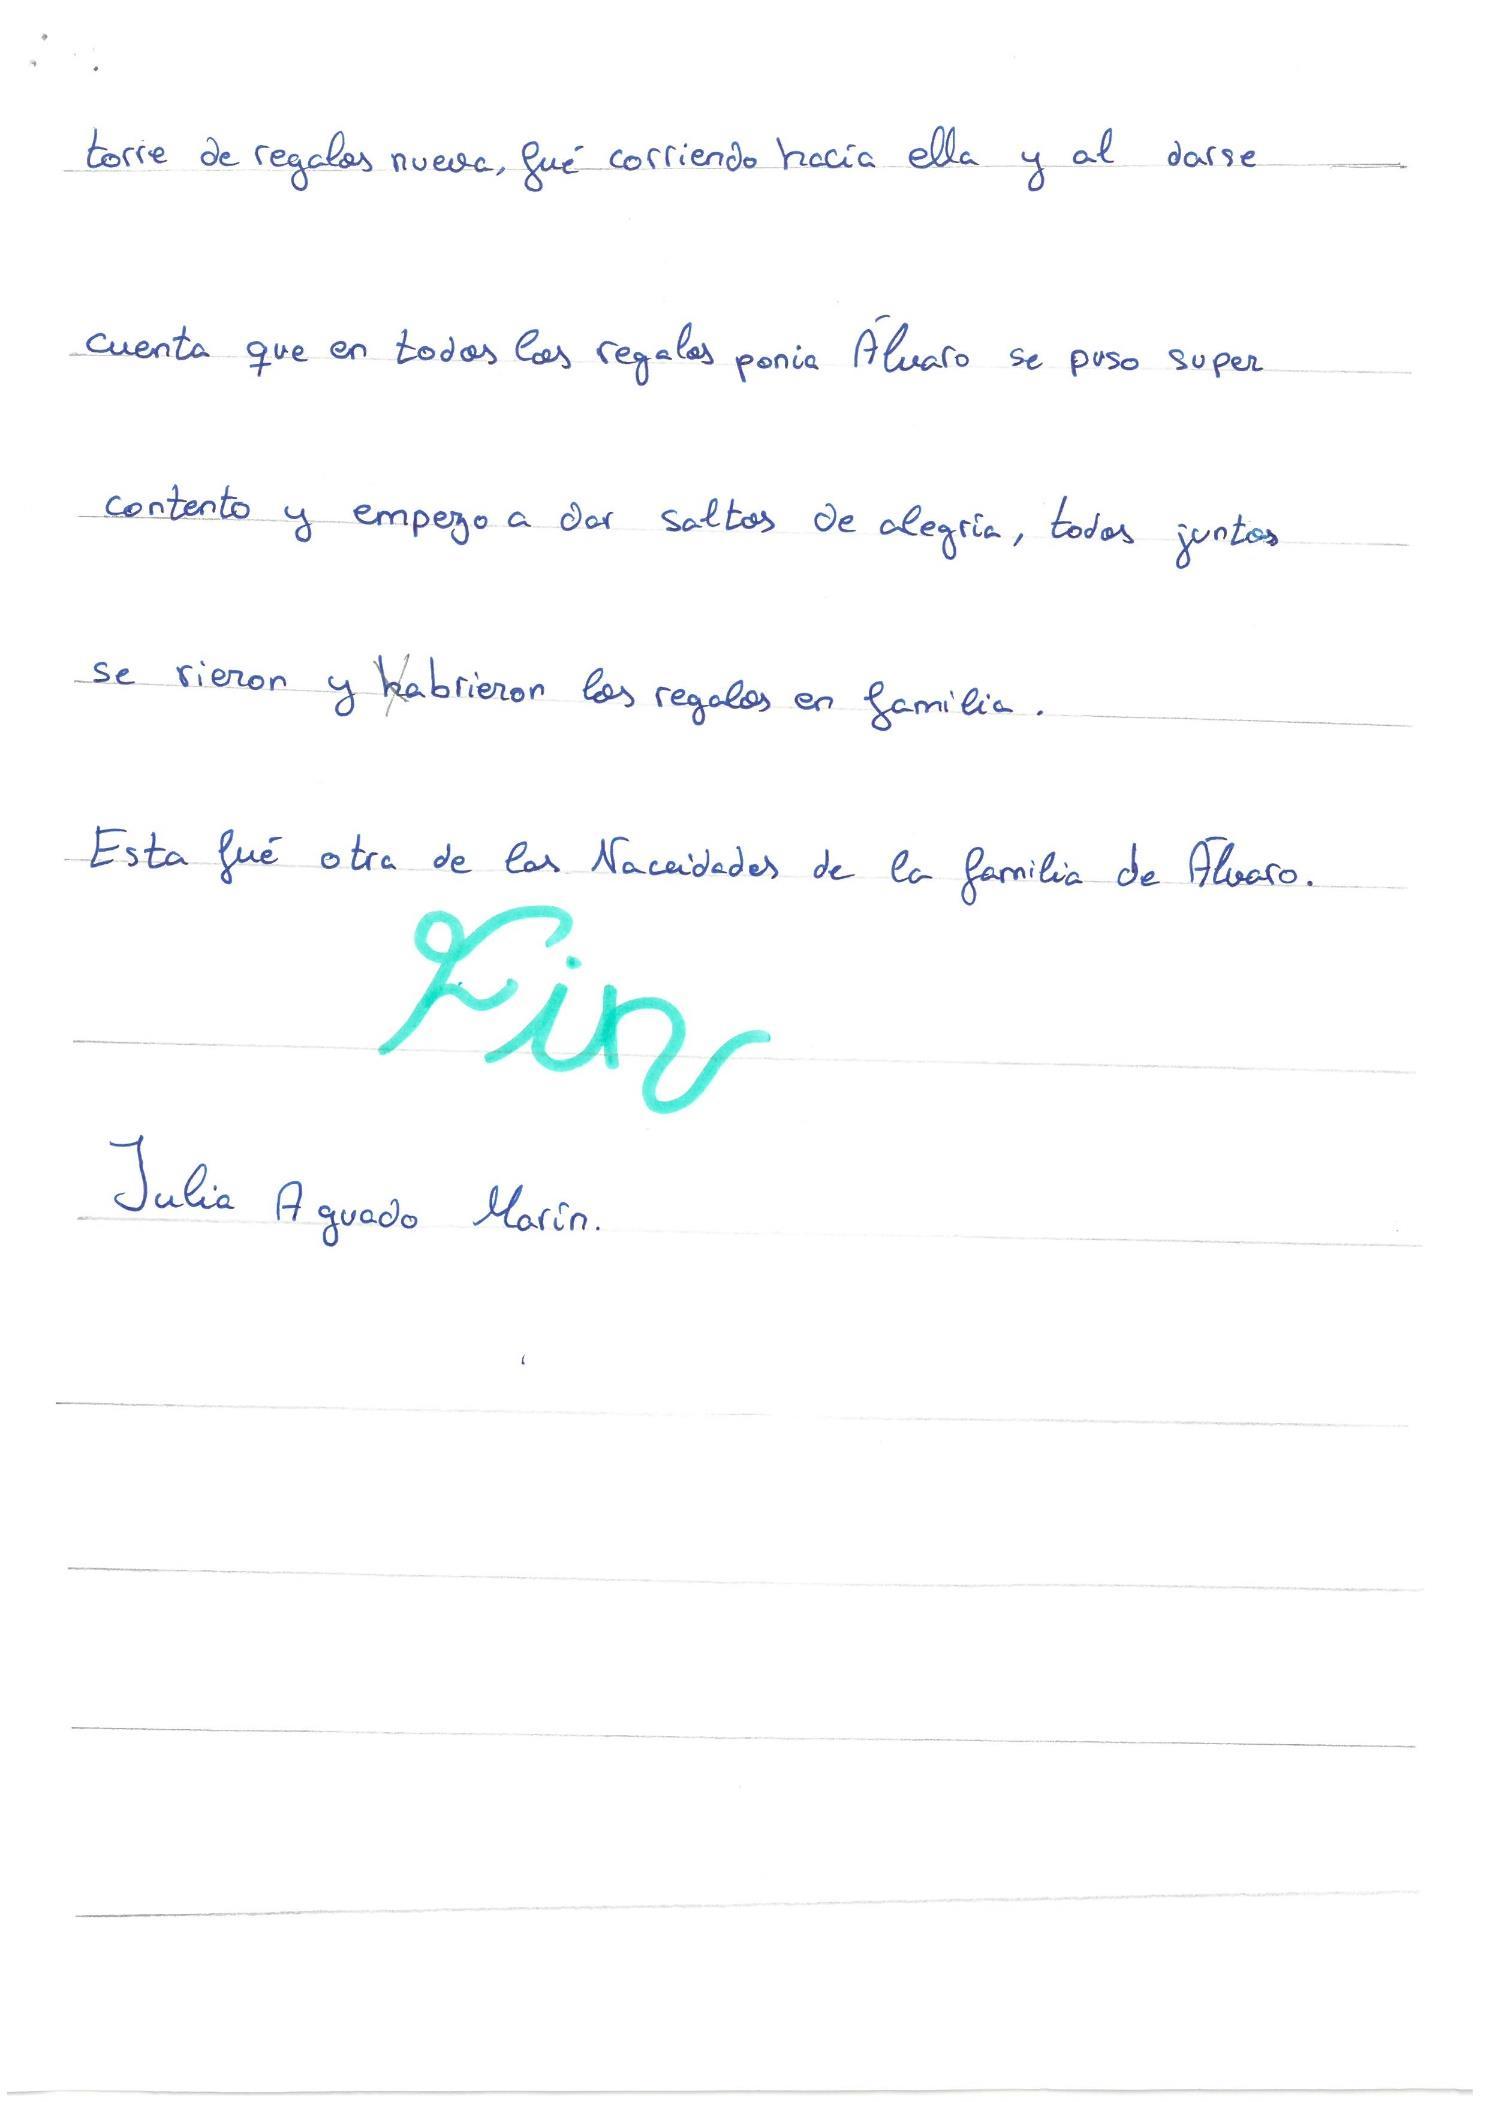 torre de regalos nueva, fué corriendo hacia ella y al darse
cuenta que en todos los regalos ponia Álvaro se puso super
contento y empezo a dar saltos de alegría, todos juntos
se rieron y abrieron los regalos en familia.
Esta fué otra de las Navidades de la familia de Álvaro.
Fin
Julia Aguado Marín.